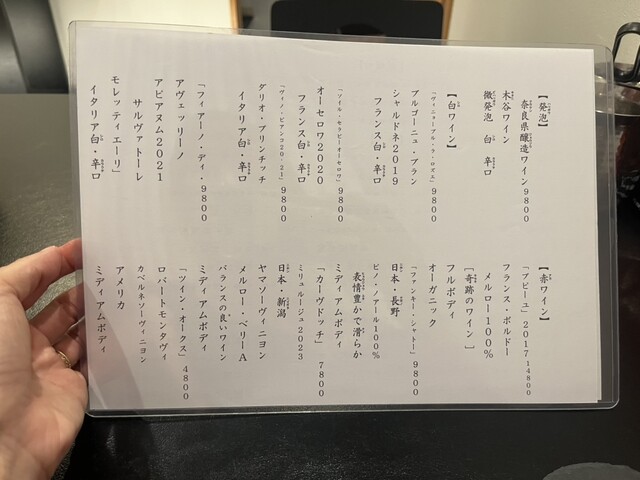 【発泡】
奈良県醸造ワイン9800
木谷ワイン
微発泡　白　辛口
【白ワイン】
「ヴィニョーブル・ラ・ロズエ」9800
ブルゴーニュ・ブラン
シャルドネ2019
フランス白・辛口
「ソイル・セラピーオーセロワ」9800
オーセロワ2020
フランス白・辛口
「ヴィノ・ビアンコ20・21」9800
ダリオ・プリンチッチ
イタリア白・辛口
「フィアーノ・ディ・9800
アヴェッリーノ
アピアヌム2021
サルヴァトーレ
モレッティエーリ」
イタリア白・辛口
【赤ワイン】
「プピーユ」2017 14800
フランス・ボルドー
メルロー100%
[奇跡のワイン]
フルボディ
オーガニック
「ファンキー・シャトー」9800
日本・長野
ピノ・ノアール100%
表情豊かで滑らか
ミディアムボディ
「カーヴドッチ」7800
ミリュルージュ2023
日本・新潟
ヤマソーヴィニヨン
メルロー・ベリーA
バランスの良いワイン
ミディアムボディ
「ツイン・オークス」4800
ロバートモンダヴィ
カベルネソーヴィニヨン
アメリカ
ミディアムボディ